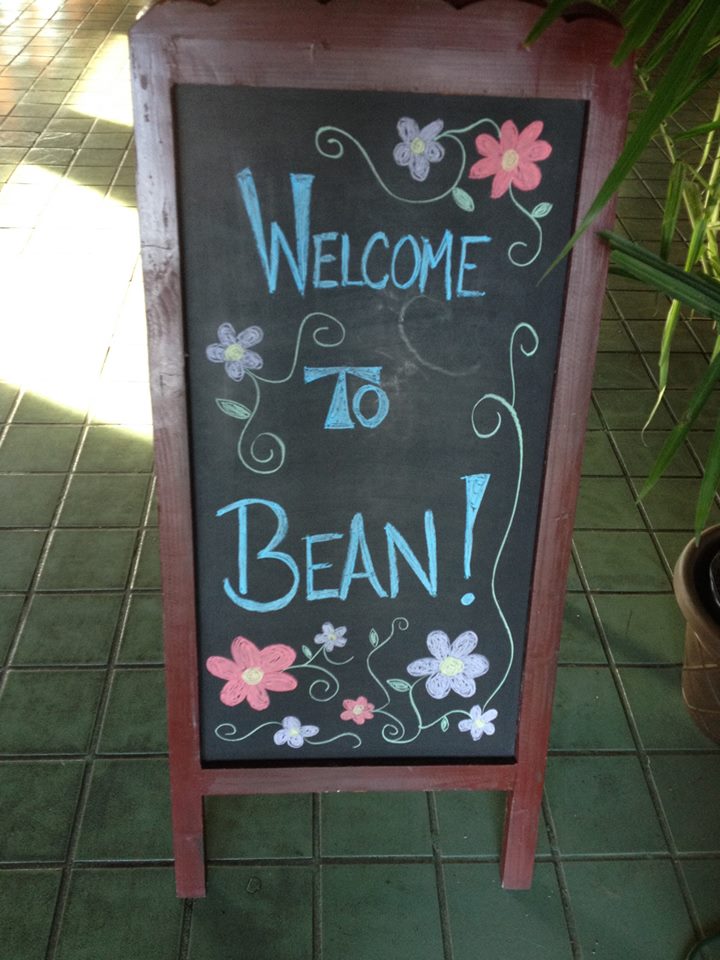 WELCOME
TO
BEAN!